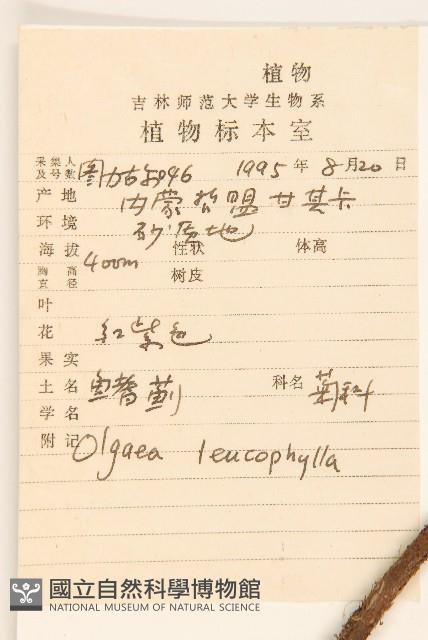 植物
吉林师范大学生物系
植物标本室
采集人及号数 图力古尔946 1995年8月20日
产地 内蒙哲盟甘其卡
环境 砂质地
海拔 400m 性状 体高
胸高直径 树皮
叶
花 红紫色
果实
土名 鳍蓟 科名 菊科
学名
附记 Olgaea leucophylla
國立自然科學博物館
NATIONAL MUSEUM OF NATURAL SCIENCE